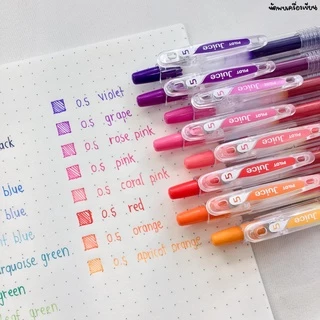 นักพบเครื่องเขียน
0.5 violet
0.5 grape
0.5 rose pink
0.5 pink
0.5 coral pink
0.5 red
0.5 orange
0.5 apricot orange
blue
blue
blue
turquoise green
green
leaf green
PILOT Juice 05
PILOT Juice 05
PILOT Juice 05
PILOT Juice 05
PILOT Juice 05
PILOT Juice
PILOT Juice